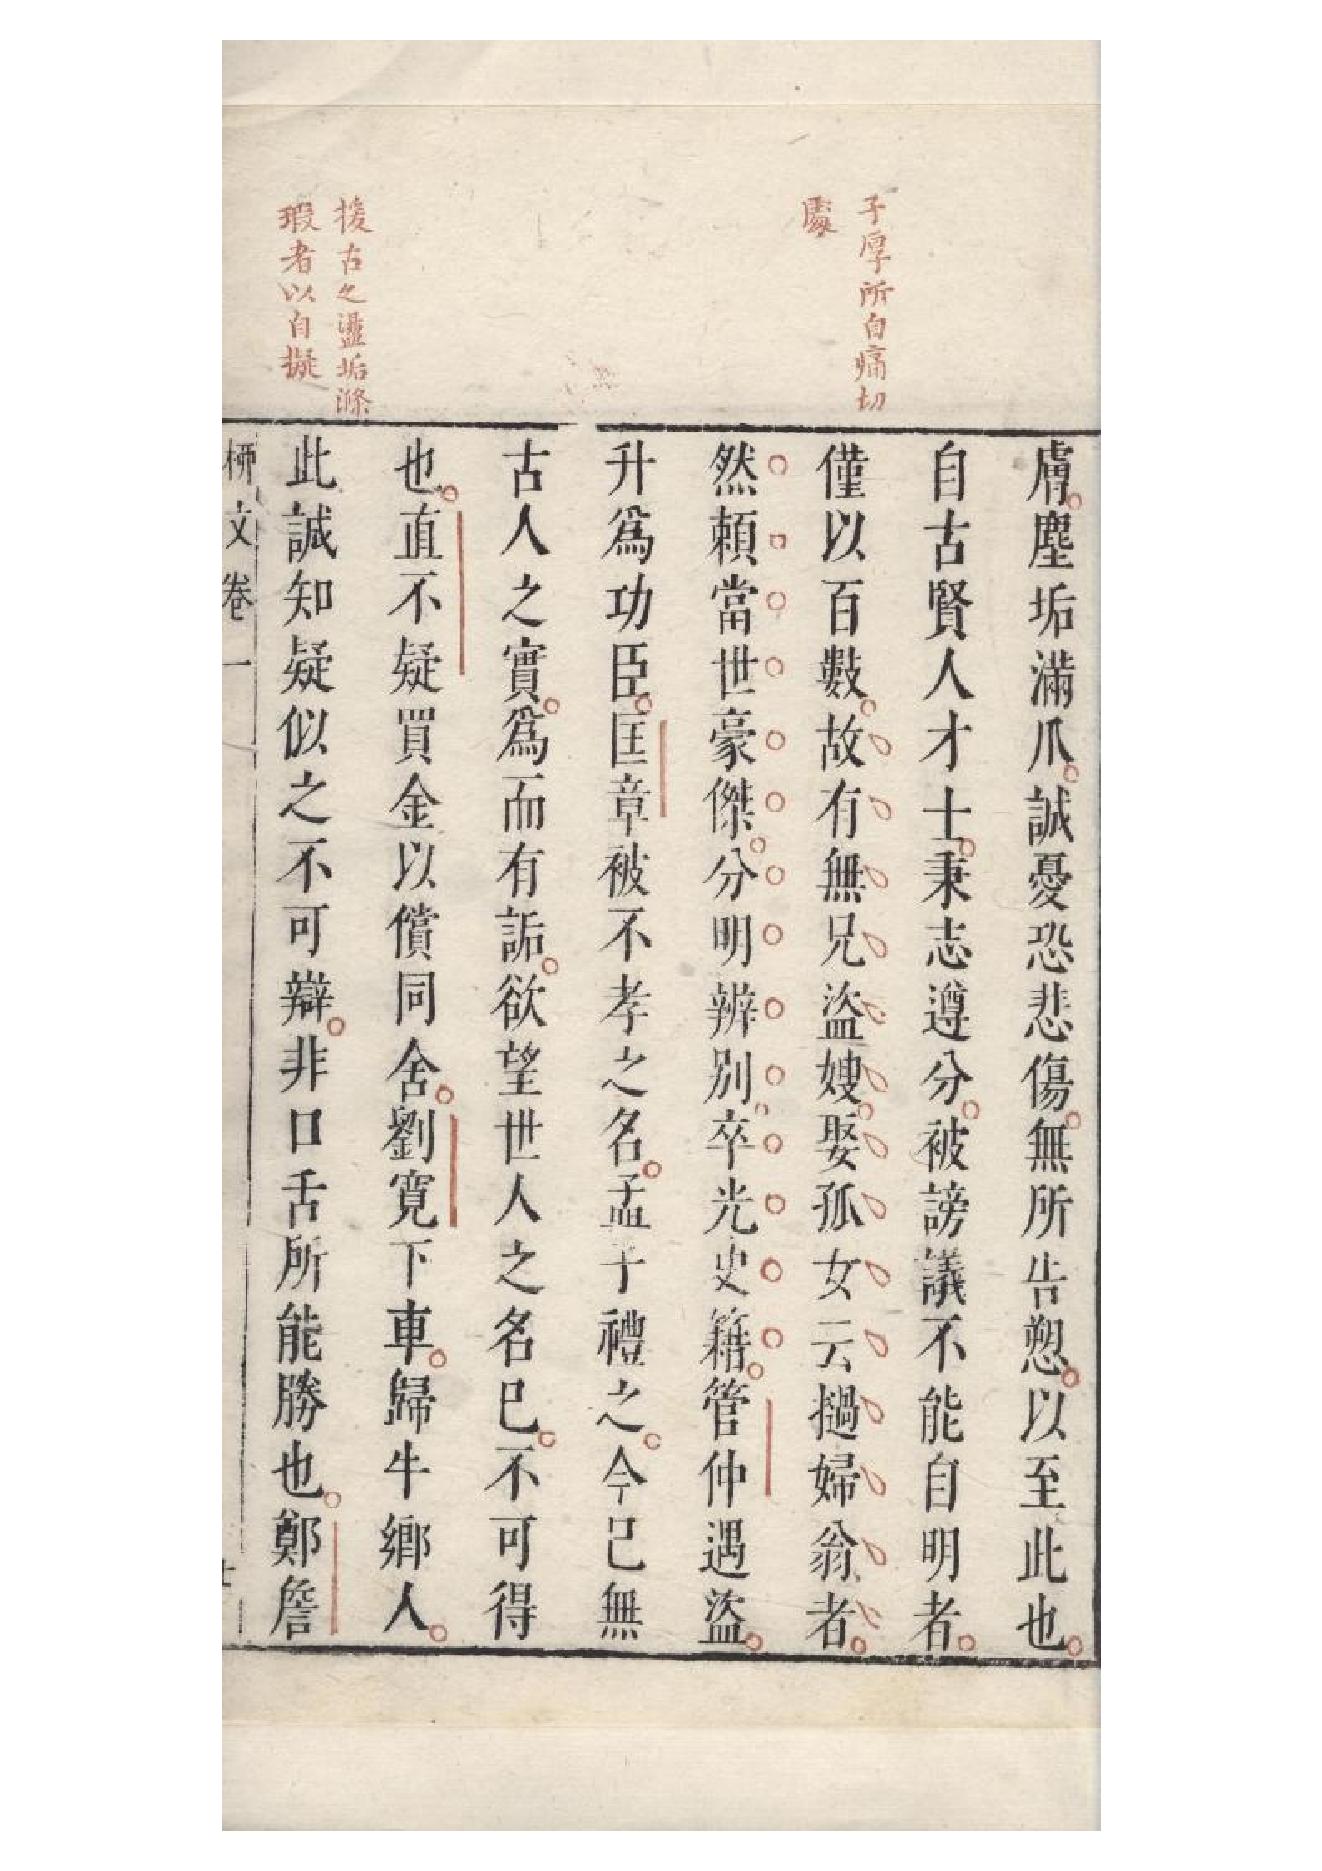 子厚所自痛切
處
援古之盪垢滌
瑕者以自擬
膚塵垢滿爪誠憂恐悲傷無所告愬以至此也
自古賢人才士秉志遵分被謗議不能自明者
僅以百數故有無兄盜嫂娶孤女云撾婦翁者
然賴當世豪傑分明辨別卒光史籍管仲遇盜
升爲功臣匡章被不孝之名孟子禮之今已無
古人之實爲而有詬欲望世人之名已不可得
也直不疑買金以償同舍劉寬下車歸牛鄉人
此誠知疑似之不可辯非口舌所能勝也鄭詹
柳文卷一